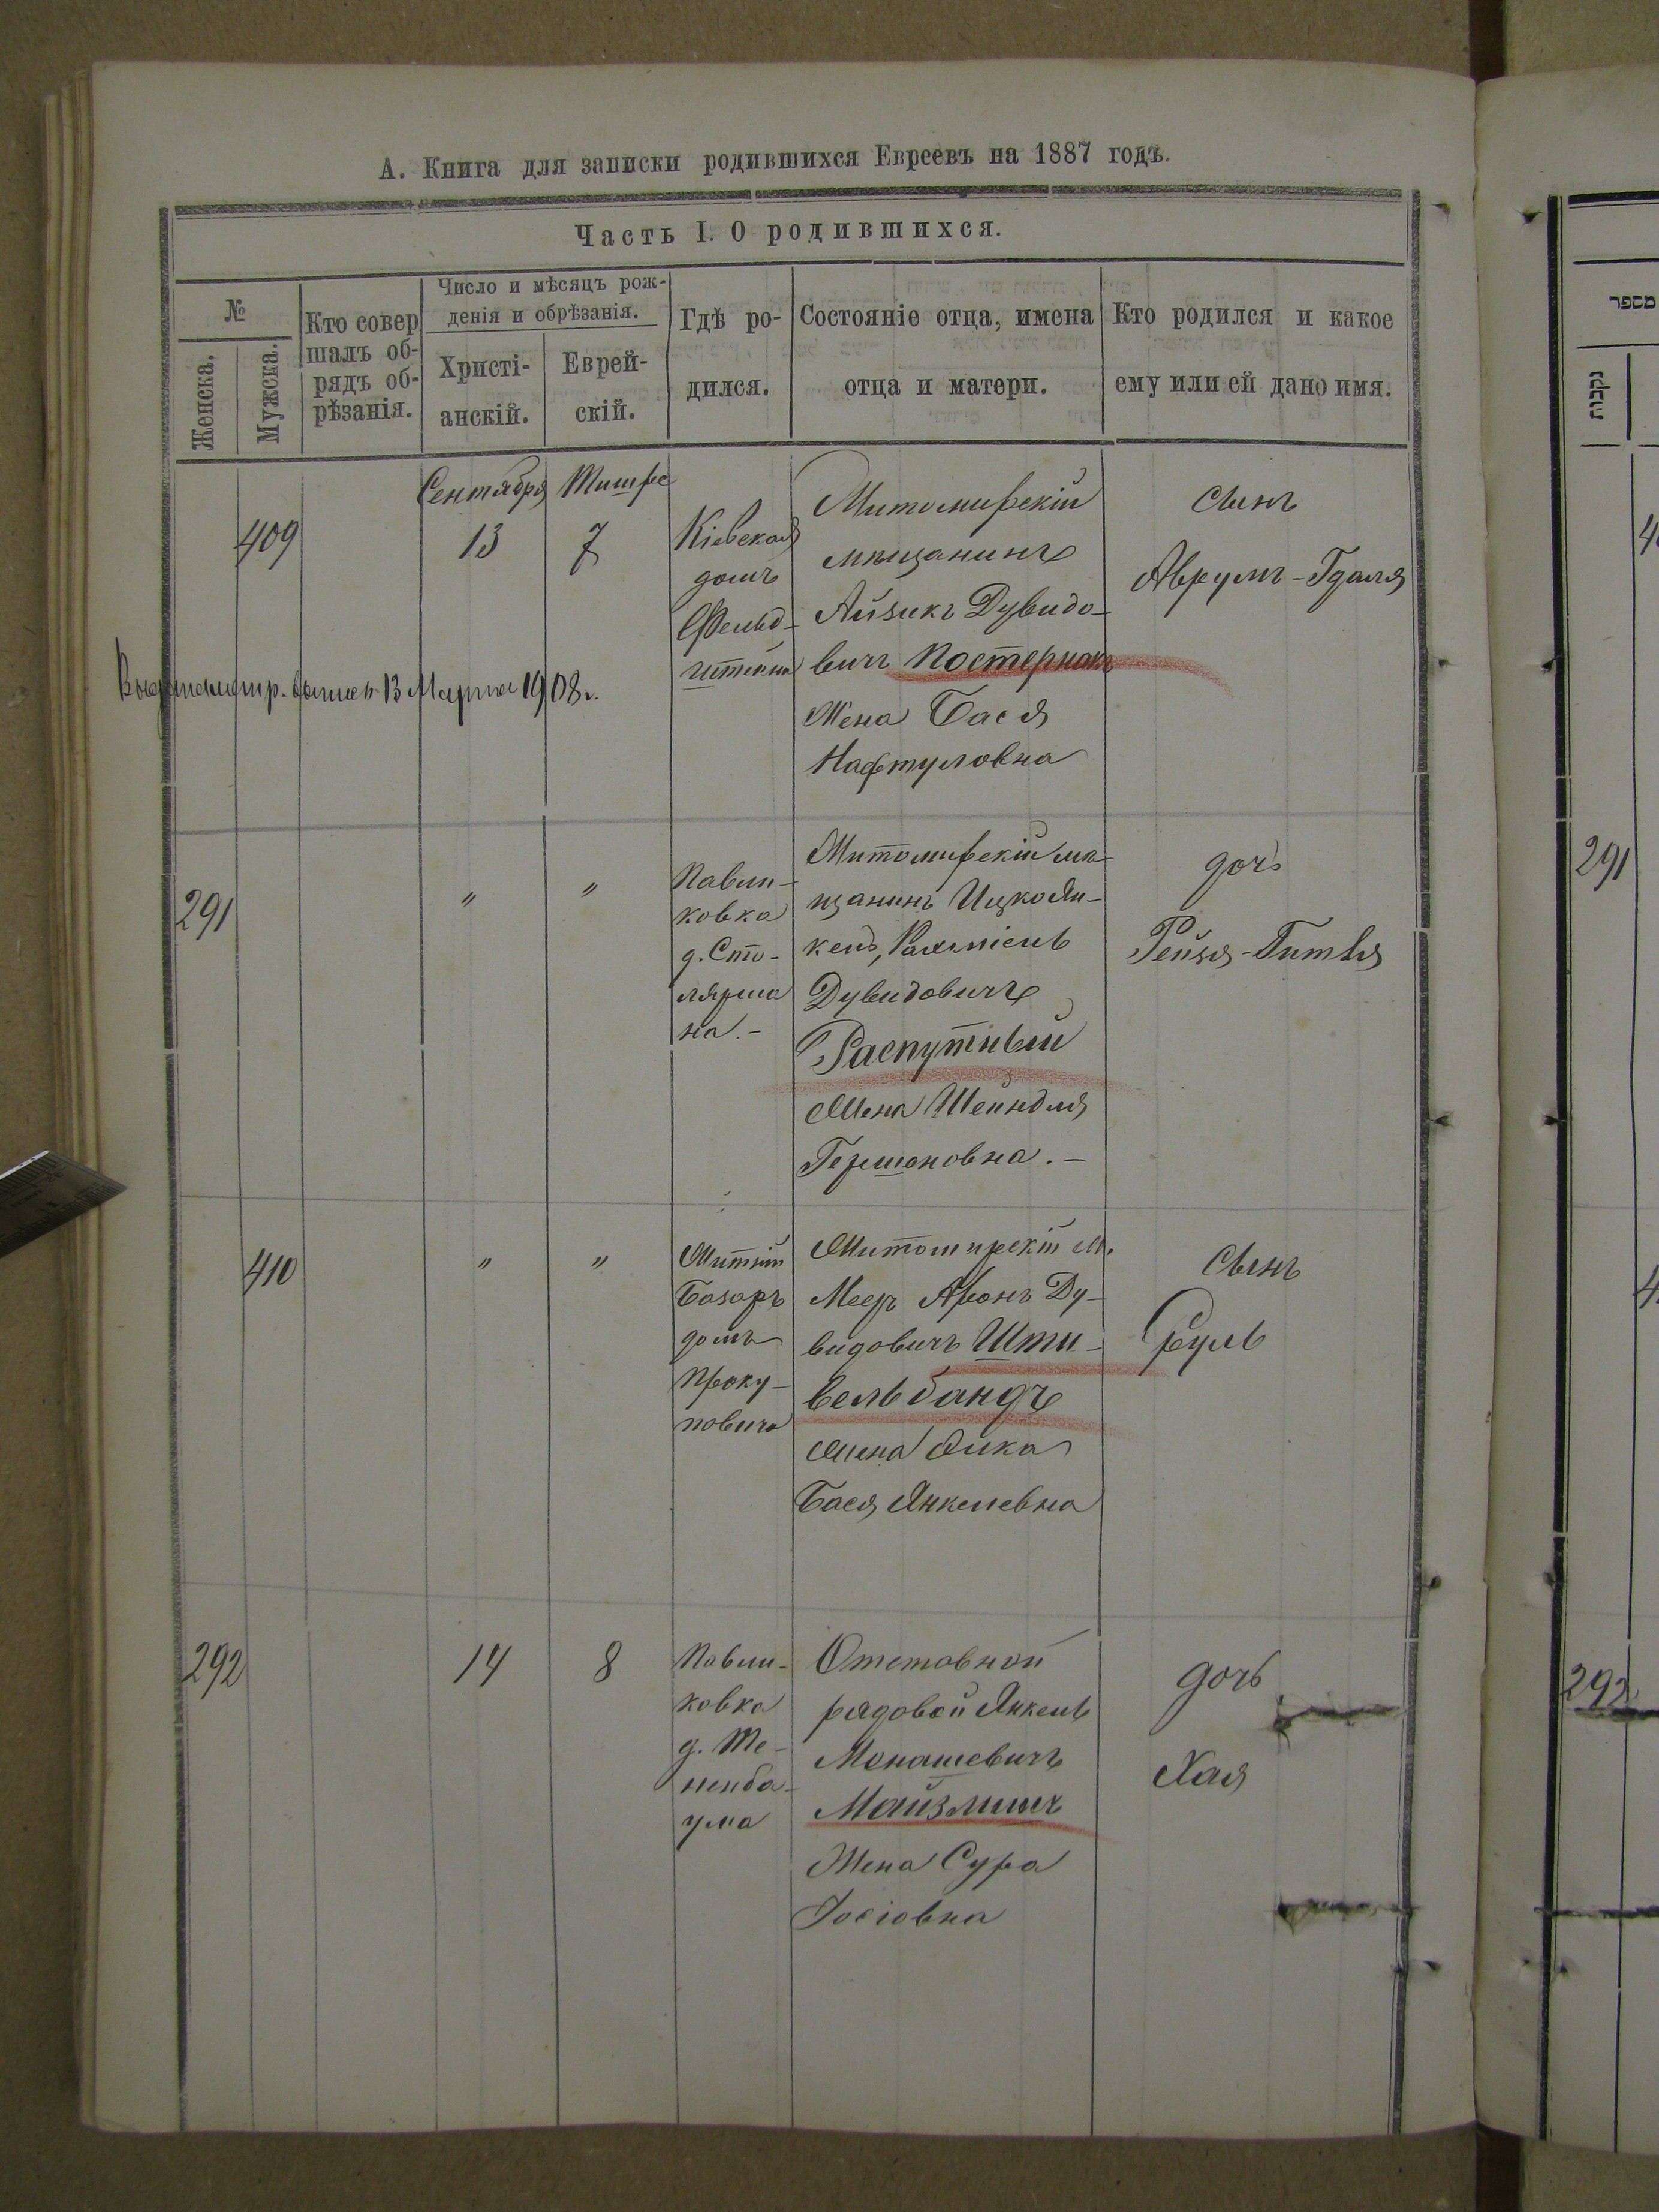 А. Книга для записки родившихся Евреевъ на 1887 годъ.
Часть I. О родившихся.
№
Женска.
Мужска.
Кто совер
шалъ об-
рядъ об-
рѣзанія.
Число и мѣсяцъ рож-
денія и обрѣзанія.
Христі-
анскій.
Еврей-
скій.
Гдѣ ро-
дился.
Состояніе отца, имена
отца и матери.
Кто родился и какое
ему или ей дано имя.
Сентября
Тишре
409
13
7
Кіевская
домъ
Фельд-
штейна
Житомирскій
мѣщанинъ
Айзикъ Дувидо-
вичъ Постернакъ
Жена Бася
Нафтуловна
сынъ
Аврумъ-Гдаля
13 Марта 1908 г.
291
"
"
Павли-
ковка
д. Сто-
лярма
на.-
Житомирскій мѣ-
щанинъ Ицко Ян-
кель, Рахміель
Дувидовичъ
Распутный
Жена Шейндля
Гершоновна.-
дочь
Рейзя-Гитля
410
"
"
Житній
Базаръ
домъ
Проку-
повича
Житомирскій м.
Меер Аронъ Ду-
видовичъ Шти-
вельбандъ
жена
Бася Янкелевна
сынъ
Сруль
292
14
8
Павли-
ковка
д. Те-
ненба-
ума
Отставной
рядовой Янкель
Монашевичъ
Майзлишъ
Жена Сура
Іосіовна
дочь
Хая
מספר
נקבות
291
292